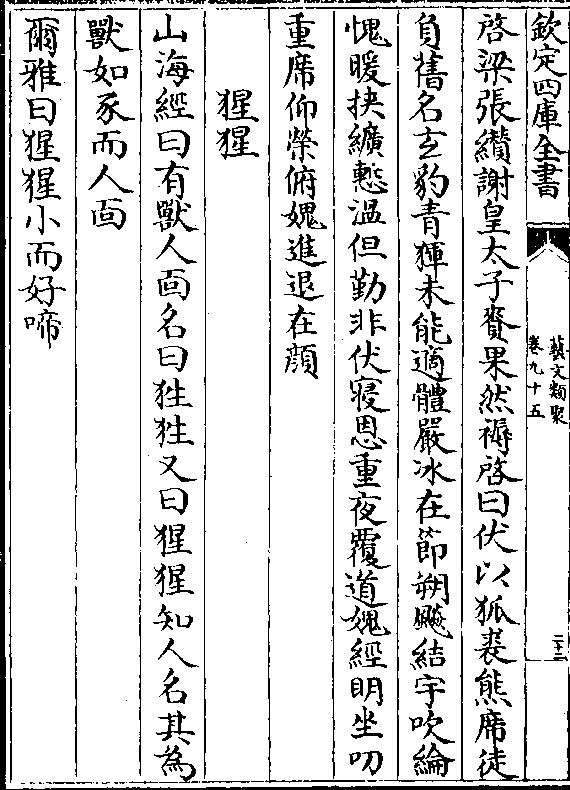 欽定四庫全書
藝文類聚
卷九十五
二十二
啓梁張纘謝皇太子賚果然褥啓曰伏以狐裘熊席徒
負舊名玄豹青貚未能適體嚴冰在節朔飈結宇吹綸
愧暖挾纊慙溫但勤非伏寢恩重夜覆道媿經明坐叨
重席仰榮俯媿進退在顔
猩猩
山海經曰有獸人面名曰狌狌又曰猩猩知人名其為
獸如豕而人面
爾雅曰猩猩小而好啼